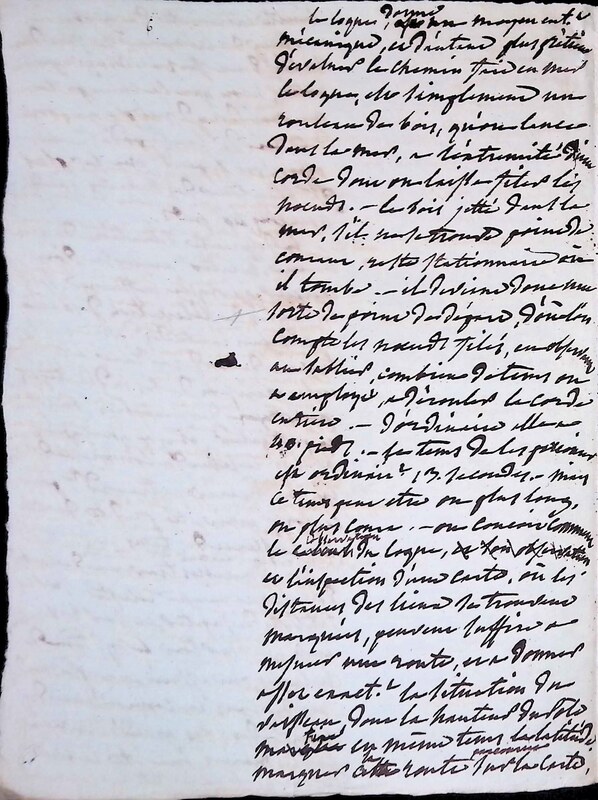 le loques, donne un moyen ent.r
mécanique, et d'autant plus précieux
d'évaluer le chemin fait en mer
le loque, est simplement un
rouleau de bois, qu'on lance
dans la mer, a l'extremité d'une
corde dont on laisse filer les
noeuds. – le bois jetté dans la
mer, s'il ne se trouve point de
courant, reste stationnaire où
il tombe – il devient donc une
sorte de point de départ, d'où l'on
compte les noeuds filés, en observant
au sablier, combien de tems on
a employé, a dérouler la corde
entière. – d'ordinaire elle a
pieds. – le tems de les
est ordinair.t 13 secondes. – mais
ce tems peut etre ou plus long,
ou plus court. – on concoit comment
le du loque,
et l'inspection d'une carte, où les
distances des lieux se trouvent
marquées, peuvent suffire a
mesurer une route, et a donner
assez exact.t la situation du
vaisseau dont la hauteur du pole
en même tems la latitude
marquer cette route sur la carte.